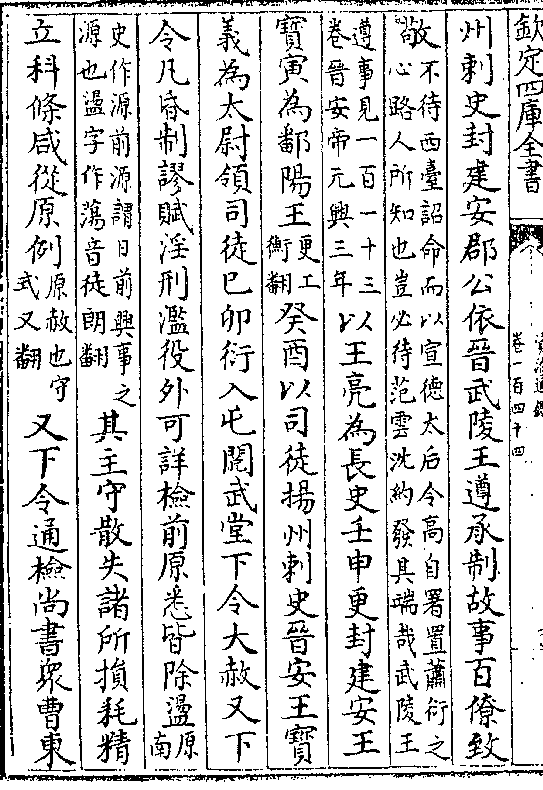 欽定四庫全書
資治通鑑
卷一百四十四
州刺史封建安郡公依晉武陵王遵承制故事百僚致
敬不待西臺詔命而以宣德太后令高自署置蕭衍之
心路人所知也豈必待范雲沈約發其端哉武陵王
遵事見一百一十三
卷晉安帝元興三年以王亮為長史壬申更封建安王
寶寅為鄱陽王更工
衡翻癸酉以司徒揚州刺史晉安王寶
義為太尉領司徒巳卯衍入屯閱武堂下令大赦又下
令凡昏制謬賦淫刑濫役外可詳檢前原悉皆除盪原
南
史作源前源謂日前興事之
源也盪字作蕩音徒朗翻其主守散失諸所損耗精
立科條咸從原例原赦也守
式又翻又下令通檢尚書衆曹東